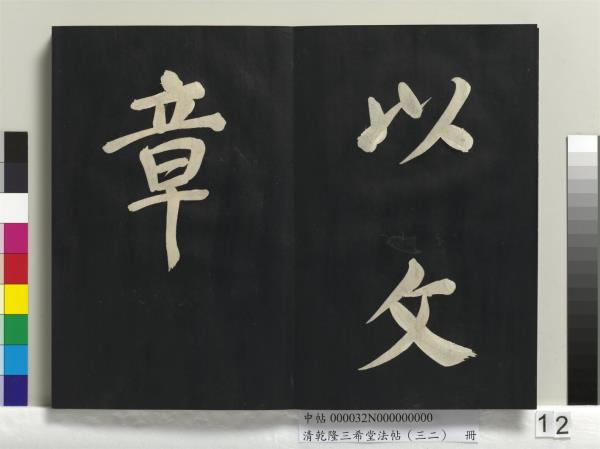 以文
章
中帖 000032N000000000
清乾隆三希堂法帖（三二） 冊
12